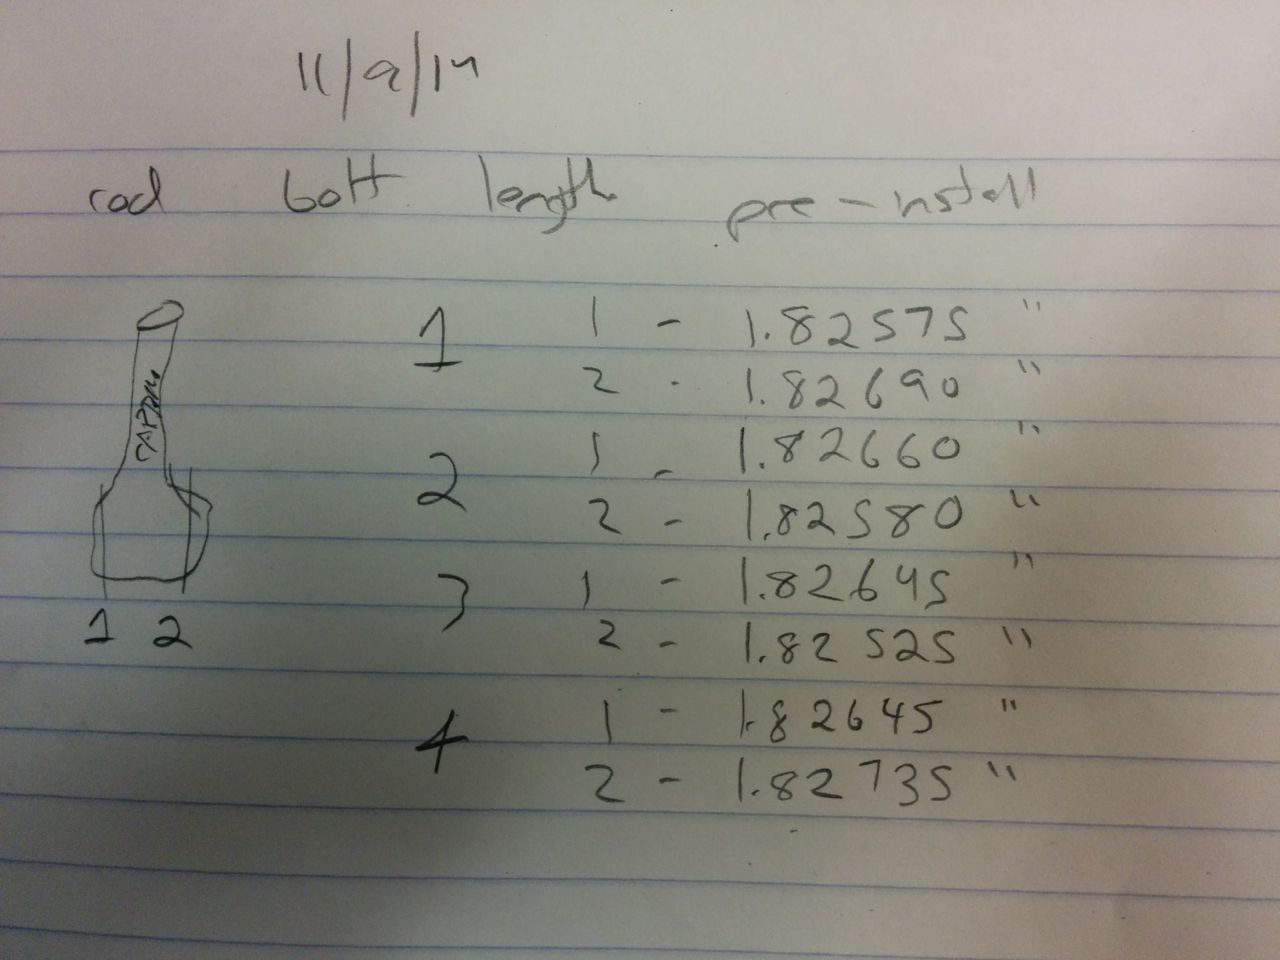 11/9/14
rod bolt length pre-install
1 1 - 1.82575 "
2 - 1.82690 "
2 1 - 1.82660 "
2 - 1.82580 "
3 1 - 1.82645 "
2 - 1.82525 "
4 1 - 1.82645 "
2 - 1.82735 "
1 2